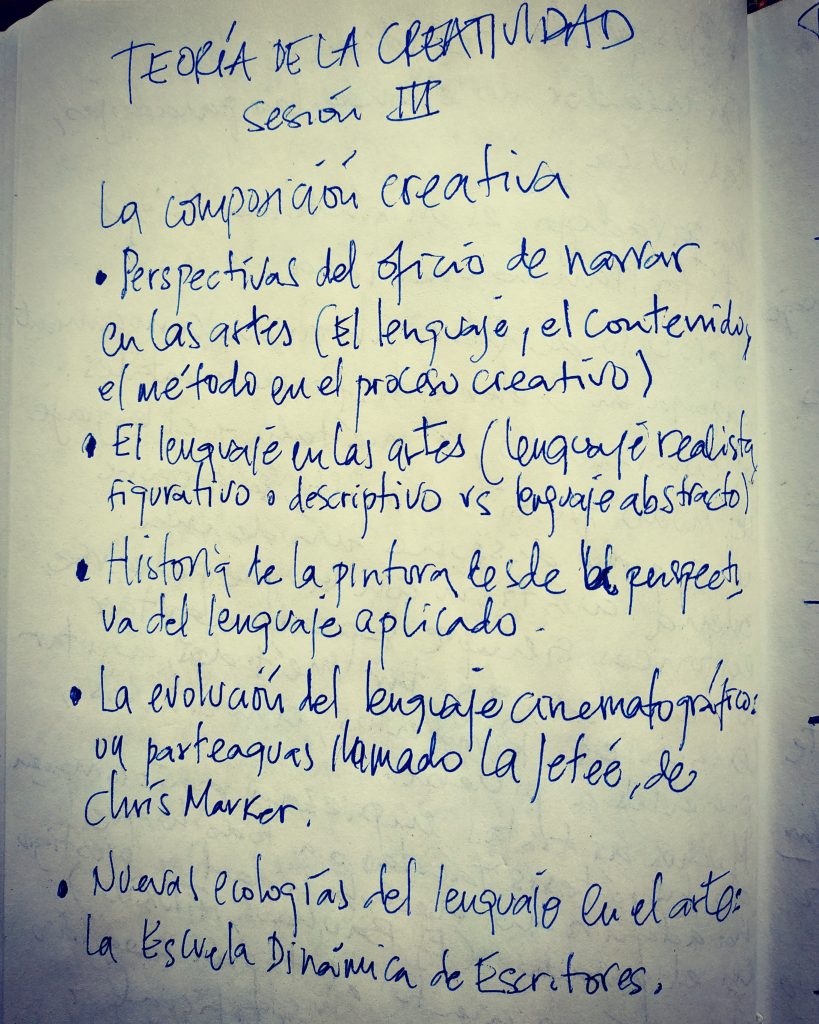 TEORÍA DE LA CREATIVIDAD
Sesión III
La composición creativa
• Perspectivas del oficio de narrar
en las artes (El lenguaje, el contenido,
el método en el proceso creativo)
• El lenguaje en las artes (lenguaje realista,
figurativo o descriptivo vs lenguaje abstracto)
• Historia de la pintura desde la perspecti
va del lenguaje aplicado.
• La evolución del lenguaje cinematográfico:
un parteaguas llamado La Jeteé, de
Chris Marker.
• Nuevas ecologías del lenguaje en el arte:
La Escuela Dinámica de Escritores.